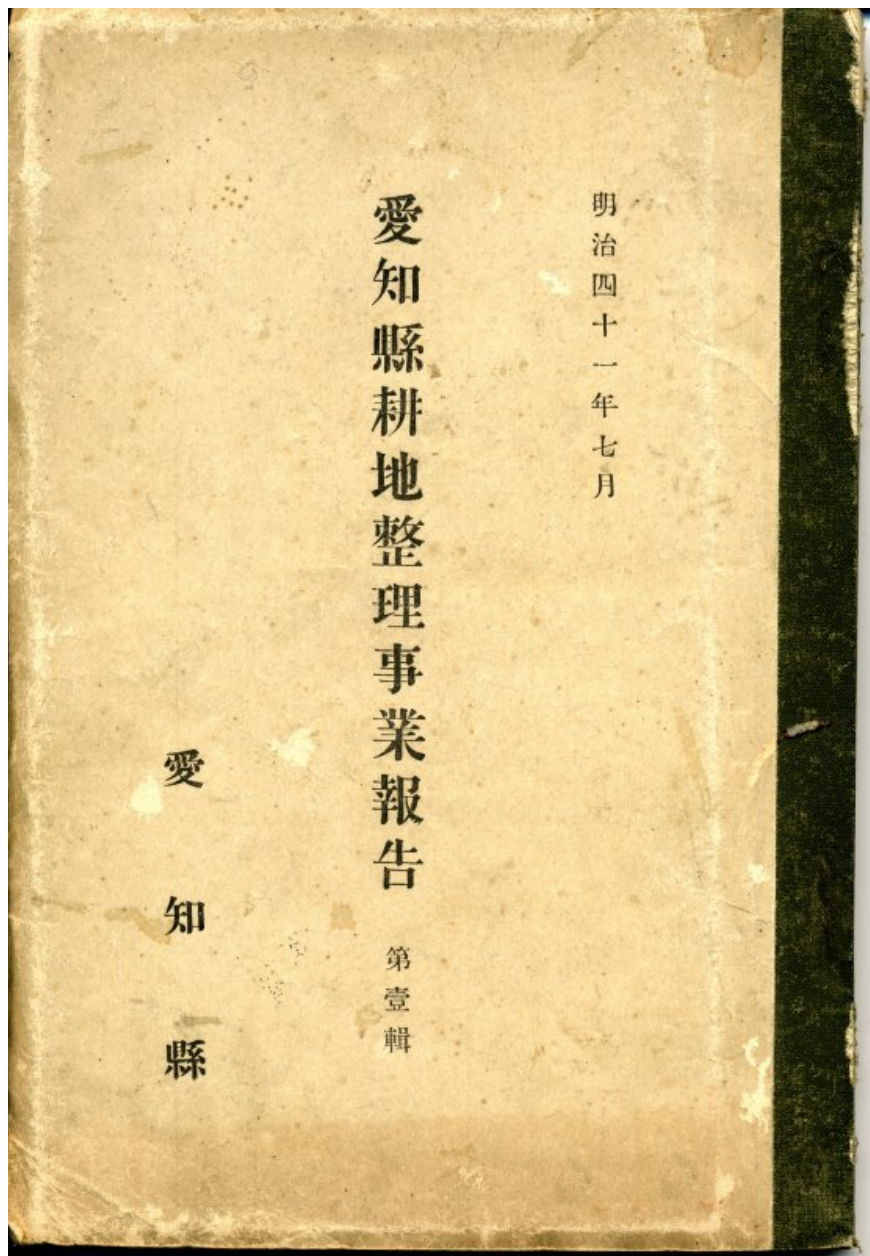 明治四十一年七月
愛知縣耕地整理事業報告 第壹輯
愛知縣